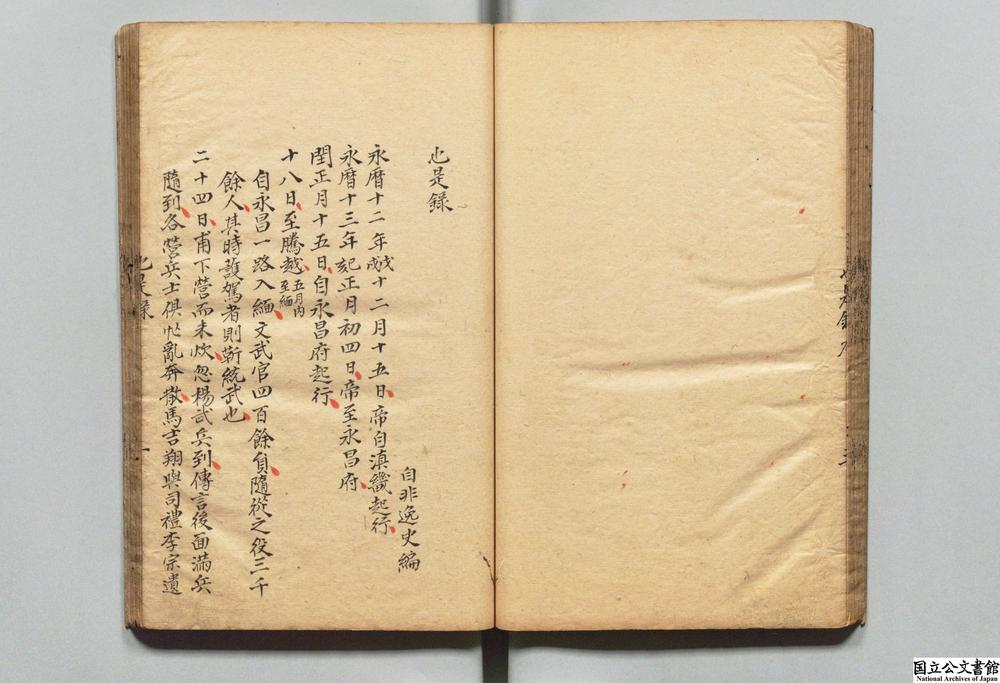 也是錄
自非逸史編
永曆十二年戊戌十二月十五日帝自滇畿起行
永曆十三年己亥正月初四日帝至永昌府
閏正月十五日自永昌府起行
十八日至騰越五月內至緬
自永昌一路入緬文武官四百餘員隨從之役三千
餘人其時護駕者則靳統武也
二十四日甫下營而未炊忽楊武兵到傳言後面滿兵
隨到各營兵士俱忙亂奔散馬吉翔與司禮李宗遺
也是錄
一
国立公文書館
National Archives of Japan